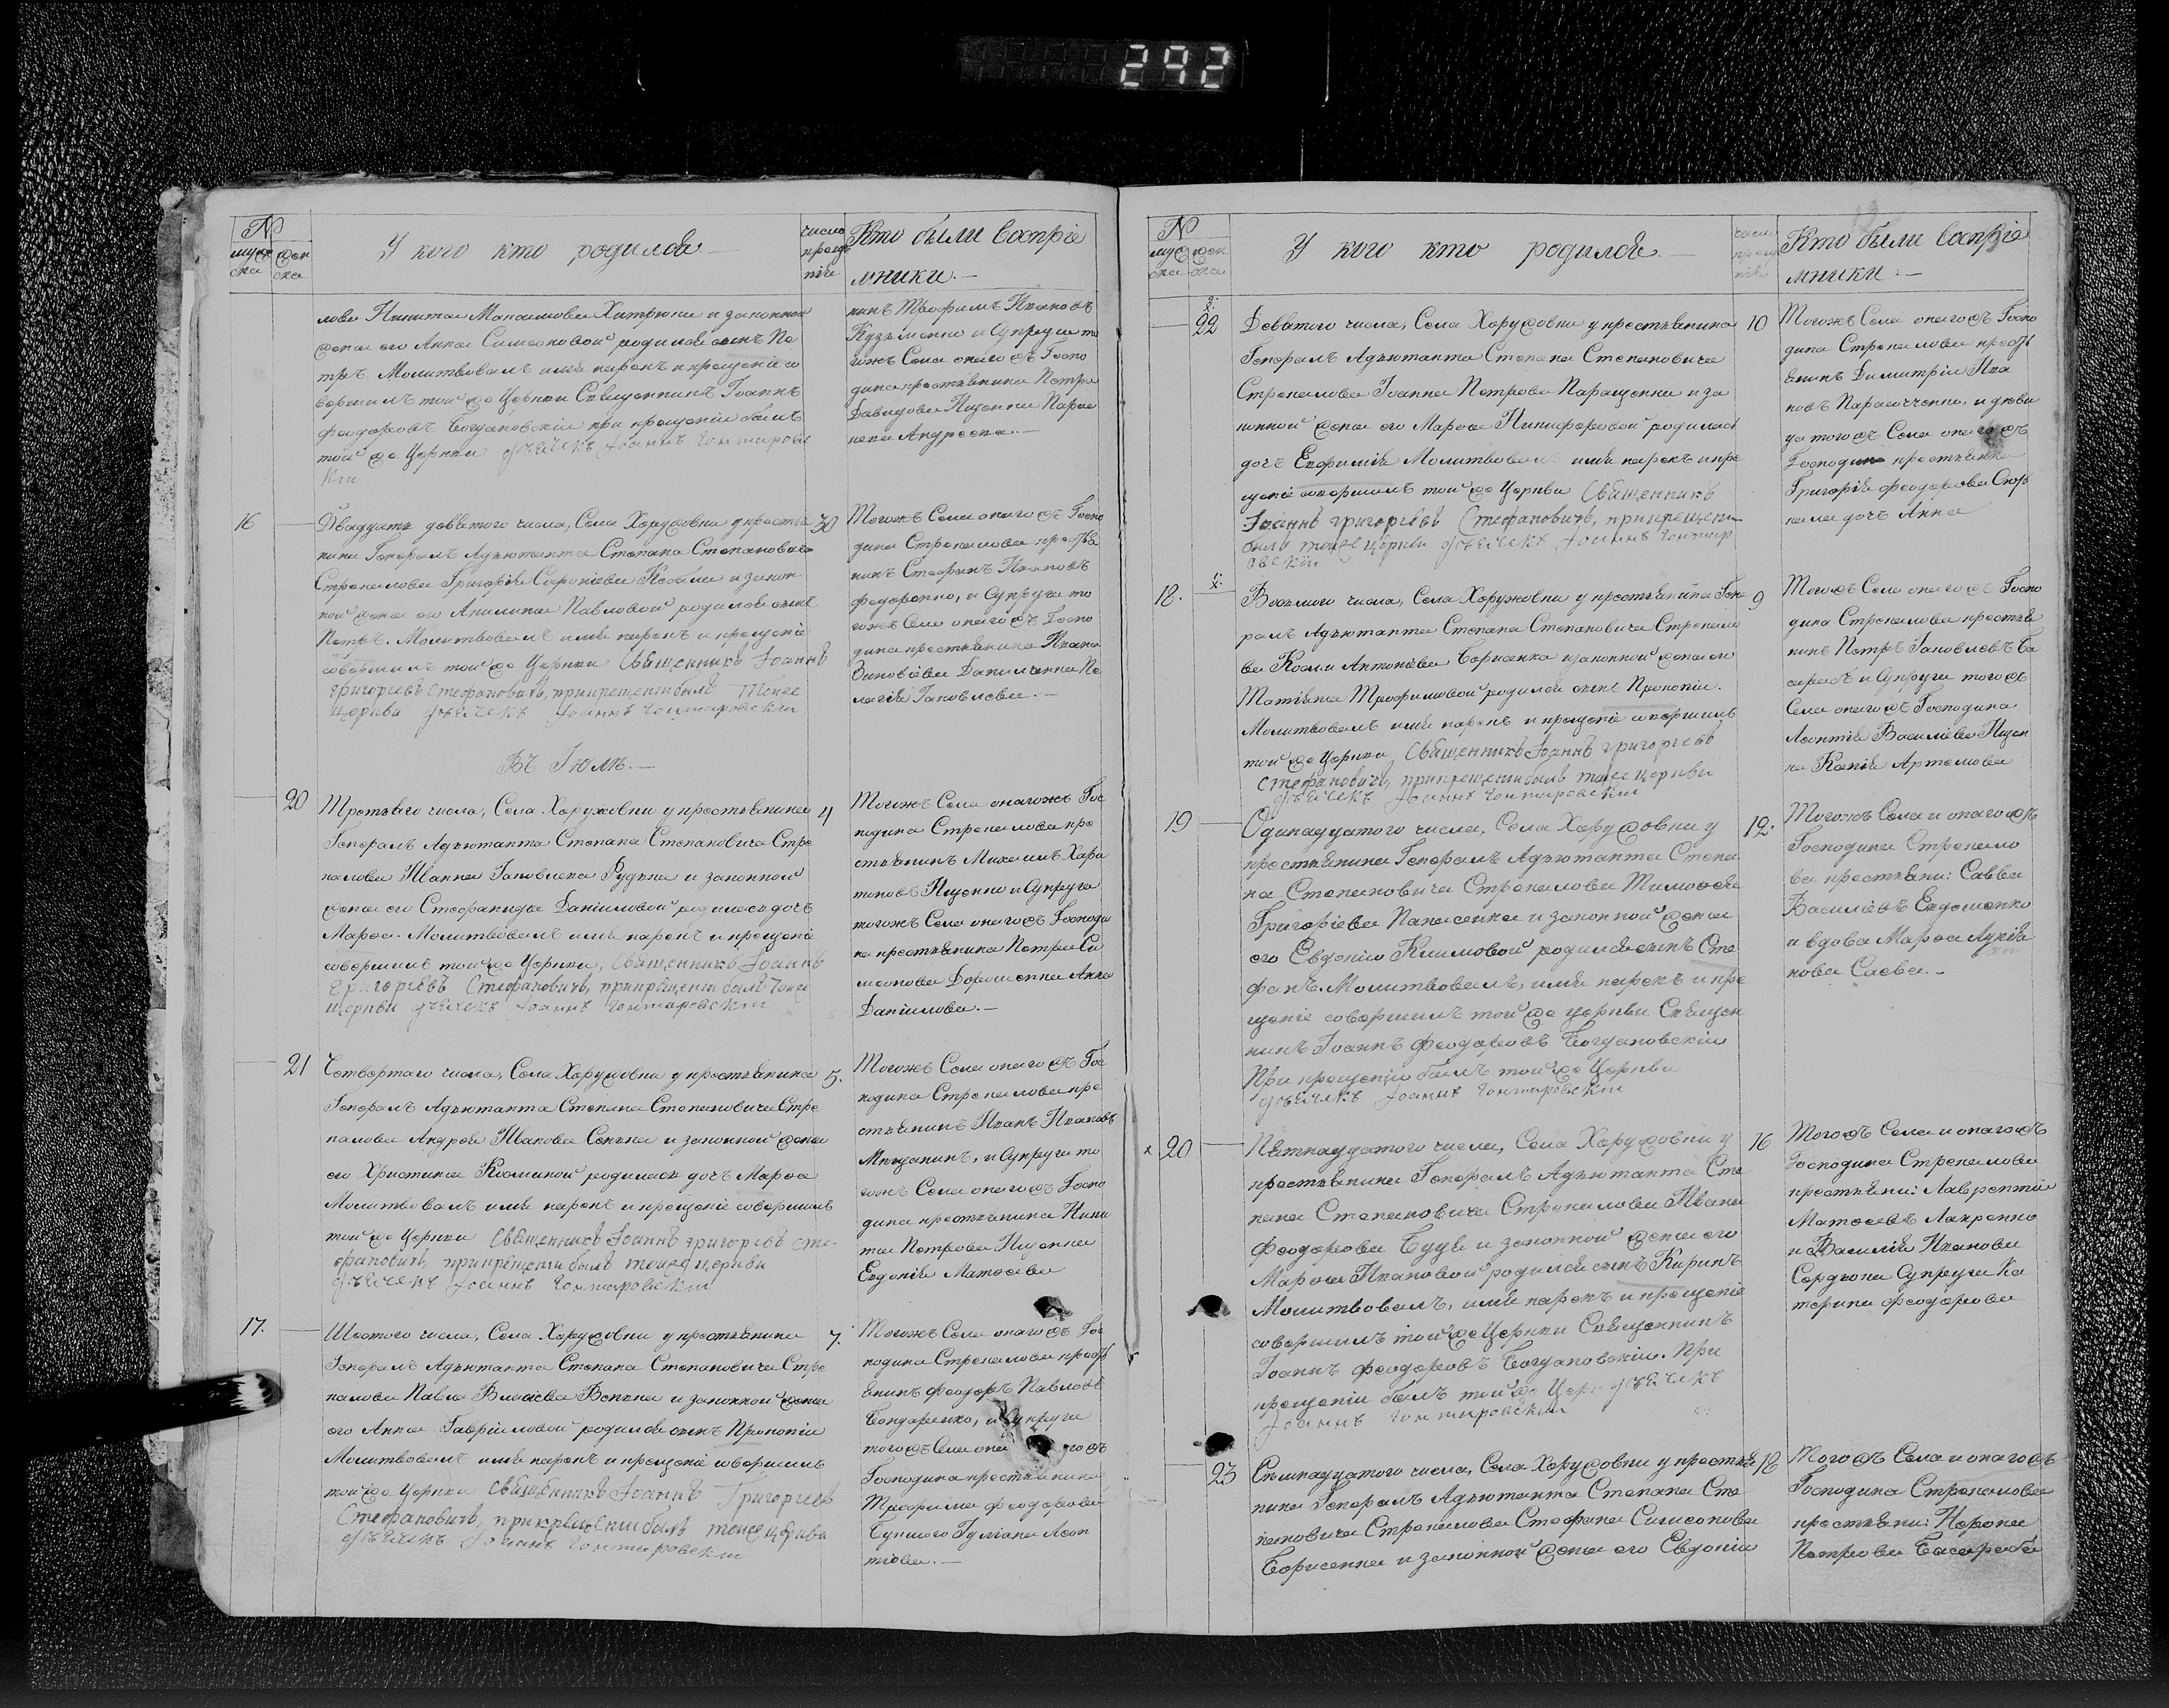 292
№
муж
ска
жен
ска
У кого кто родился
число
креще
нія
Кто были воспріе
мники.
лова Никита Максимова Хитрюка и законной
жены его Анна Симеоновой родился сынъ Пе
тръ Молитвовалъ имя нарекъ и крещеніе со
вершилъ той же Церкви Священникъ Іоаннъ
Феодоровъ Богдановскій при крещеніи былъ
той же Церкви дьячекъ Іоаннъ Гонтаровс
кій
нинъ Трофимъ Ивановъ
Кузьменко и Супруга то
гожъ Села онаго жъ Госпо
дина крестьянина Петра
Давидова Ищенка Парас
кева Андреева.
16
Двадцать девятого числа, Села Харужовки у крестья
нина Генералъ Адъютанта Степана Степановича
Стрекалова Григорія Софоніева Кобыли и закон
ной жены его Акилина Павловой родился сынъ
Петръ. Молитвовалъ имя нарекъ и крещеніе
совершилъ той же Церкви Священникъ Іоаннъ
Григорьевъ Стефановичъ, при крещеніи былъ Тоже
церкви дьячекъ Іоаннъ Гонтаровскій
30
Тогожъ Села онаго жъ Госпо
дина Стрекалова крестья
нинъ Стефанъ Ивановъ
Федоренко, и Супруга то
гожъ Села онаго жъ Госпо
дина крестьянина Ивана
Зиновіева Данильченка Пе
лагія Яковлева.
Въ Іюлѣ.
20
Третьяго числа, Села Харужовки у крестьянина
Генералъ Адъютанта Степана Степановича Стре
калова Иванна Яковлева Рудька и законной
жены его Стефанида Даніиловой родилась дочь
Марфа. Молитвовалъ имя нарекъ и крещеніе
совершилъ той же Церкви, Священникъ Іоаннъ
Григорьевъ Стефановичъ, при крещеніи былъ тоже
церкви дьячекъ Іоаннъ Гонтаровскій
4
Тогожъ Села онагожъ Гос
подина Стрекалова кре
стьянинъ Михаилъ Хари
тоновъ Ищенко и Супруга
тогожъ Села онаго жъ Господи
на крестьянина Петра Си
меонова Дорошенка Анна
Даніилова.
21
Четвертаго числа, Села Харужовки у крестьянина
Генералъ Адъютанта Степана Степановича Стре
калова Андрея Иванова Сенька и законной жены
его Христина Косминой родилась дочь Марфа
Молитвовалъ имя нарекъ и крещеніе совершилъ
той же Церкви Священникъ Іоаннъ Григорьевъ Сте-
фановичъ, при крещеніи былъ тоже церкви
дьячекъ Іоаннъ Гонтаровскій
5.
Тогожъ Села онаго жъ Гос
подина Стрекалова кре
стьянинъ Иванъ Ивановъ
Мещанинъ, и Супруга то
гожъ Села онаго жъ Госпо
дина крестьянина Ники
та Петрова Ищенка
Евдокія Матфеева
17.
Шестого числа, Села Харужовки у крестьянина
Генералъ Адъютанта Степана Степановича Стре
калова Павла Власіева Венька и законной жены
его Анна Гавріиловой родился сынъ Прокопій
Молитвовалъ имя нарекъ и крещеніе совершилъ
той же Церкви Священникъ Іоаннъ Григорьевъ
Стефановичъ, при крещеніи былъ тоже церкви
дьячекъ Іоаннъ Гонтаровскій
7.
Тогожъ Села онаго жъ Гос
подина Стрекалова кресть
янинъ Феодоръ Павловъ
Бондаренко, и Супруга
тогожъ Села она го жъ
Господина крестьянина
Трофима Феодорова
Гуліана Леон
тіева.
№
муж
ска
жен
ска
У кого кто родился.
число
креще
нія
Кто были воспріе
мники.
22
Девятого числа, Села Харужовки у крестьянина
Генералъ Адъютанта Степана Степановича
Стрекалова Іоанна Петрова Паращенка и за
конной жены его Марфа Никифоровой родилась
дочь Евфимія Молитвовалъ имя нарекъ и кре
щеніе совершилъ той же Церкви Священникъ
Іоаннъ Григорьевъ Стефановичъ, при крещеніи
былъ тоже церкви дьячекъ Іоаннъ Гонтар
овскій
10
Тогожъ Села онаго жъ Госпо
дина Стрекалова кресть
янинъ Димитрій Ива
новъ Парасоченко, и дѣви
ца того жъ Села онаго жъ
Господина крестьянина
Григорія Феодорова
дочь Анна
18.
Восьмого числа, Села Харужовки у крестьянина Гене
ралъ Адъютанта Степана Степановича Стрекало
ва Косми Антоніева Борисенка и законной жены его
Татіяна Трофимовой родился сынъ Прокопій.
Молитвовалъ имя нарекъ и крещеніе совершилъ
той же Церкви Священникъ Іоаннъ Григорьевъ
Стефановичъ, при крещеніи былъ тоже церкви
дьячекъ Іоаннъ Гонтаровскій
9
Того жъ Села онаго жъ Госпо
дина Стрекалова крестья
нинъ Петръ Яковлевъ Ба
сарабъ и Супруга того жъ
Села онаго жъ Господина
Леонтія Василіева Ищен
ка Ксенія Артемова
19
Одинадцатого числа, Села Харужовки у
крестьянина Генералъ Адъютанта Степа
на Степановича Стрекалова Тимофея
Григоріева Панасенка и законной жены
его Евдокіи Климовой родился сынъ Сте
фанъ. Молитвовалъ, имя нарекъ и кре
щеніе совершилъ той же церкви Священ
никъ Іоаннъ Феодоровъ Богдановскій
При крещеніи былъ той же Церкви
дьячекъ Іоаннъ Гонтаровскій
12.
Тогожъ Села и онаго жъ
Господина Стрекало
ва крестьяни: Савва
Василіевъ Евдошенко
и вдова Марфа Лукія
нова Саева.
х 20
Пятнадцатого числа, Села Харужовки у
крестьянина Генералъ Адъютанта Сте
пана Степановича Стрекалова Ивана
Феодорова Буця и законной жены его
Марфы Ивановой родился сынъ Кирикъ
Молитвовалъ, имя нарекъ и крещеніе
совершилъ той же Церкви Священникъ
Іоаннъ Феодоровъ Богдановскій. При
крещеніи былъ той же Церк дьячекъ
Іоаннъ Гонтаровскій
16
Того жъ Села и онаго жъ
Господина Стрекалова
крестьяни: Лаврентій
Матфеевъ Лавренко
и Василія Иванова
Сердюка Супруга Ка
терина Феодорова
23
Семнадцатого числа, Села Харужовки у крестья
нина Генералъ Адъютанта Степана Сте
пановича Стрекалова Стефана Симеонова
Борисенка и законной жены его Евдокіи
18
Того жъ Села и онаго жъ
Господина Стрекалова
крестьяни:
Петрова Басараба